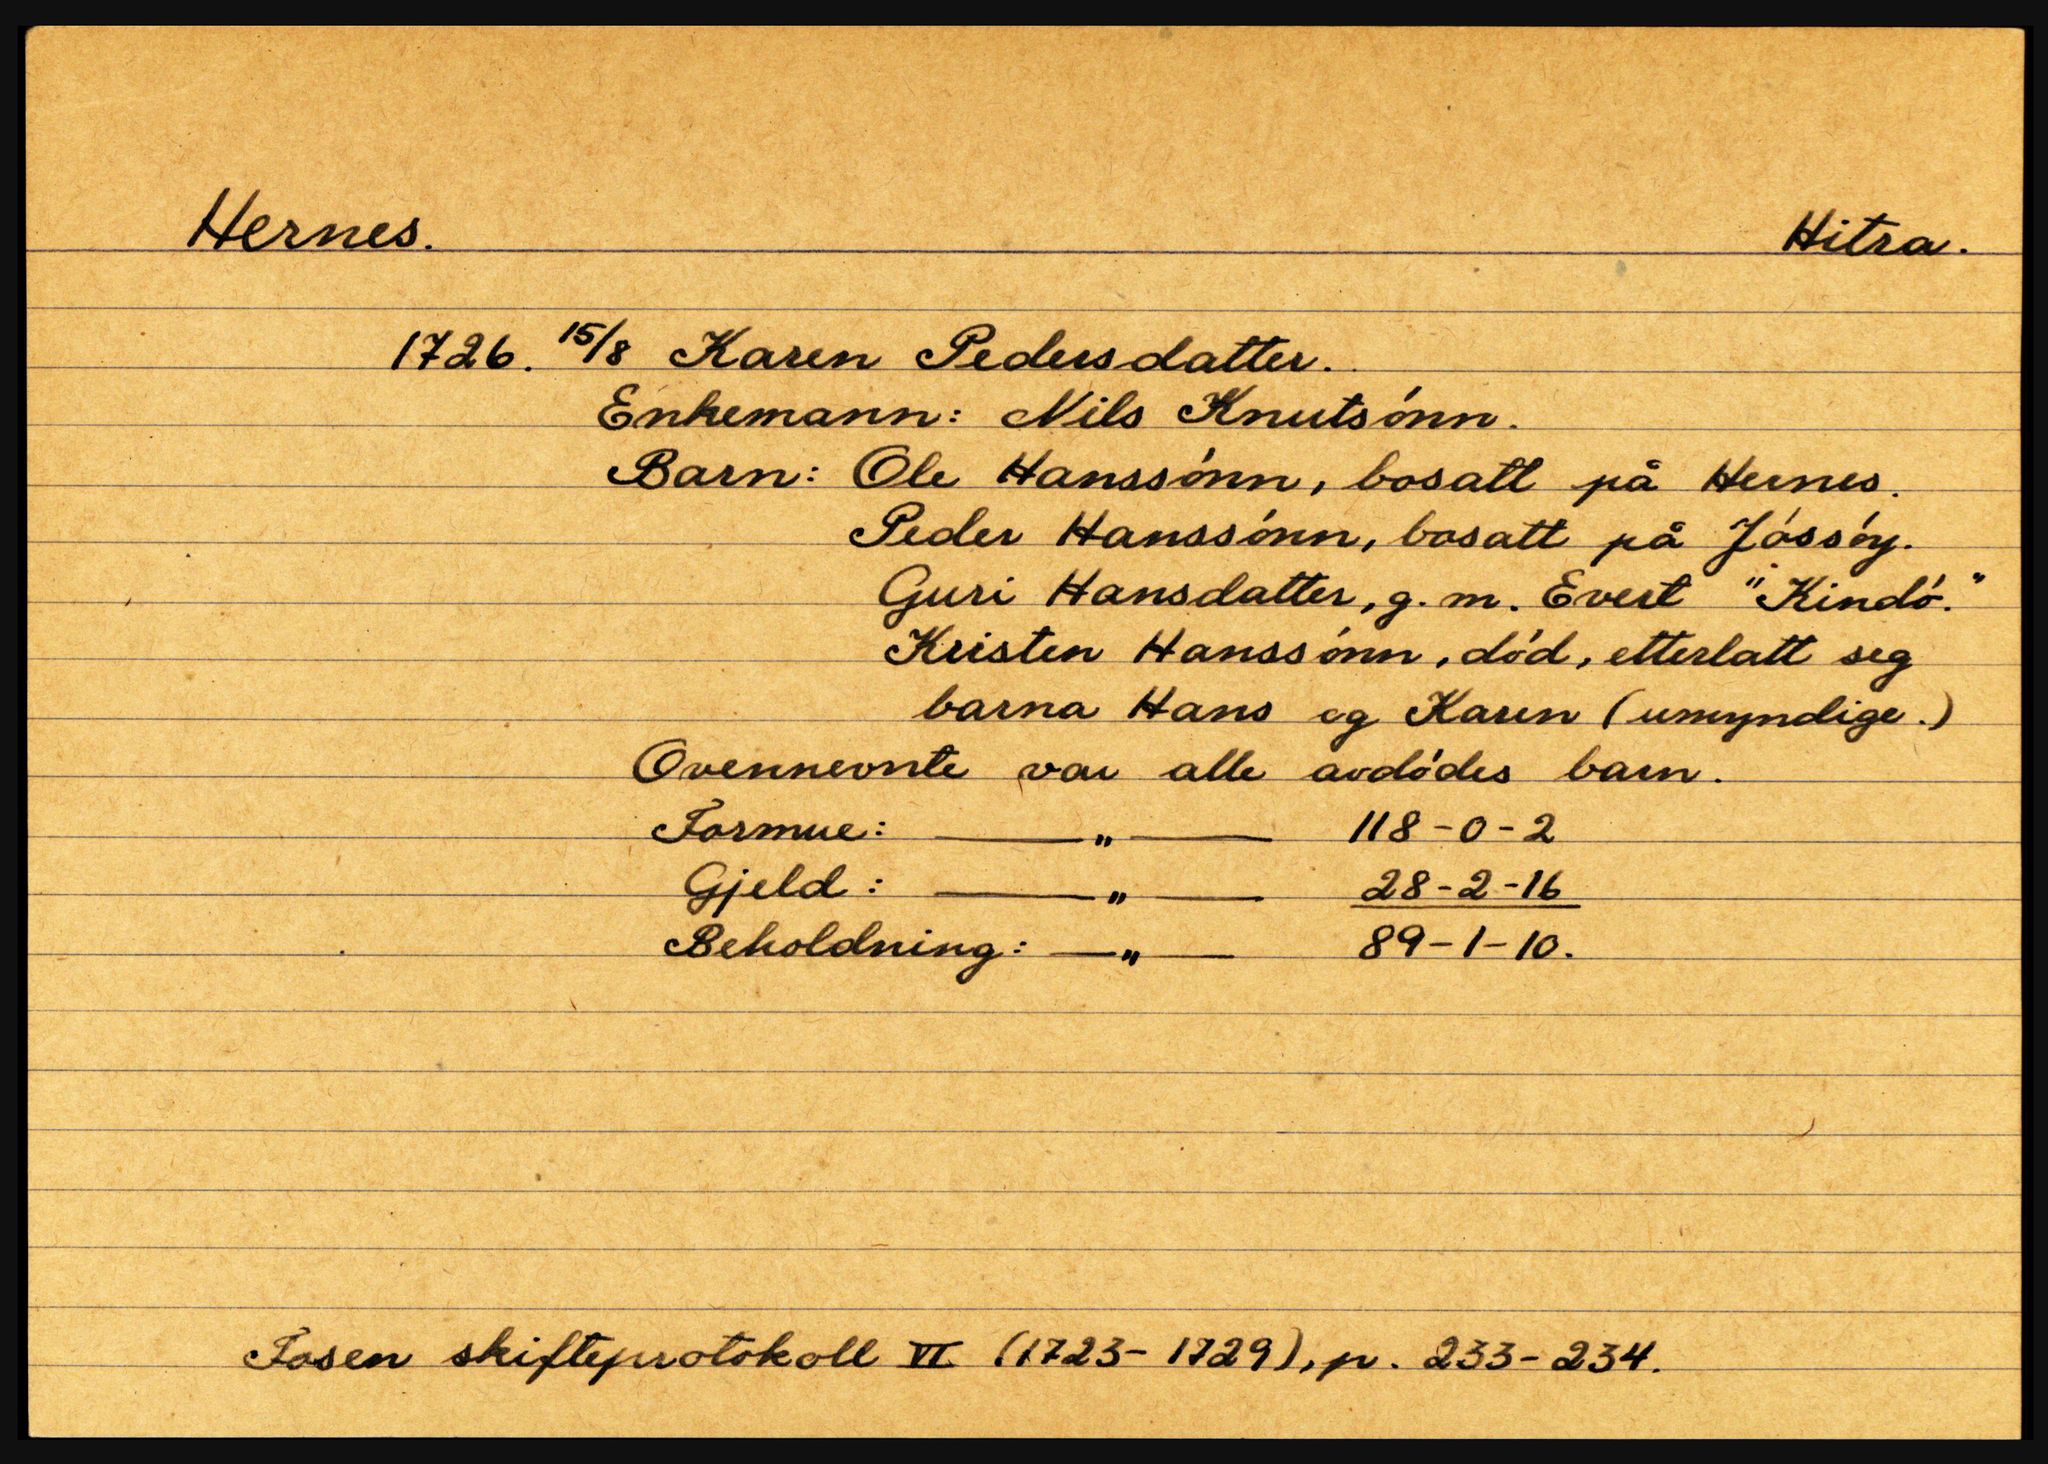 Hernes. Hitra.
1726. 15/8 Karen Pedersdatter.
Enkemann: Nils Knutsónn.
Barn: Ole Hanssónn, bosatt på Hernes.
Peder Hanssónn, bosatt på Jóssóy.
Guri Hansdatter, g. m. Evert "Kindó."
Kristen Hanssónn, dód, etterlatt seg
barna Hans og Karen (umyndige.)
Ovennevnte var alle avdódes barn.
Formue: —— " —— 118-0-2
Gjeld: —— " —— 28-2-16
Beholdning: — " — 89-1-10.
Fosen skifteprotokoll VI (1723-1729), p. 233-234.